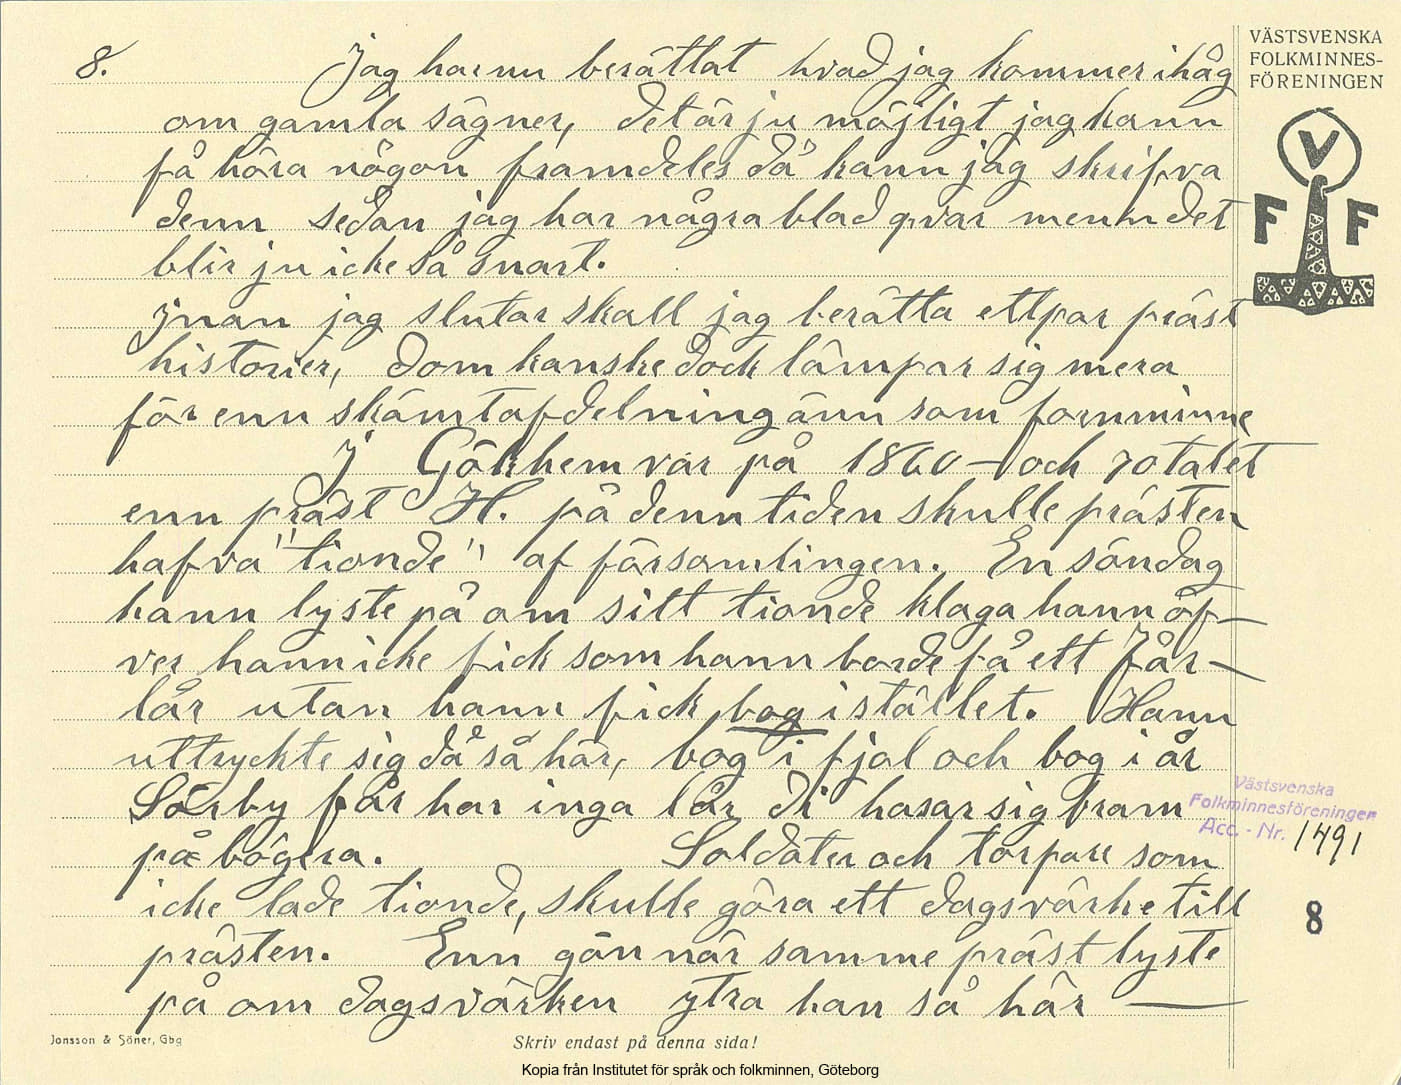 8. Jag harnu berättat hvad jag kommer ihåg
om gamla sägner, det är ju möjligt jag kann
få höra någon framdeles då kann jag skrifva
denn sedan jag har några blad qvar menn det
blir ju icke så snart.
Jnan jag slutar skall jag berätta ettpar präst
historier, dom kanske dock lämpar sig mera
för enn skämtafdelning änn som fornminne
J Gökhem var på 1860– och 70 talet
enn präst H. på denn tiden skulle prästen
hafva "tionde" af församlingen. En söndag
hann lyste på om sitt tionde klaga hann öf–
ver hann icke fick som hann borde få ett Får–
lår utan hann fick bog istället. Hann
uttryckte sig då så här, bog i fjol och bog i år
Sörby får har inga lår di hasar sig fram
på bögera. Soldater och torpare som
icke lade tionde, skulle göra ett dagsvärke till
prästen. Enn gön när samme präst lyste
på om dagsvärken ytra han så här —
VÄSTSVENSKA
FOLKMINNES-
FÖRENINGEN
V
F F
Västsvenska
Folkminnesföreningen
Acc. - Nr. 1491
8
Jonsson & Söner, Gbg
Skriv endast på denna sida!
Kopia från Institutet för språk och folkminnen, Göteborg